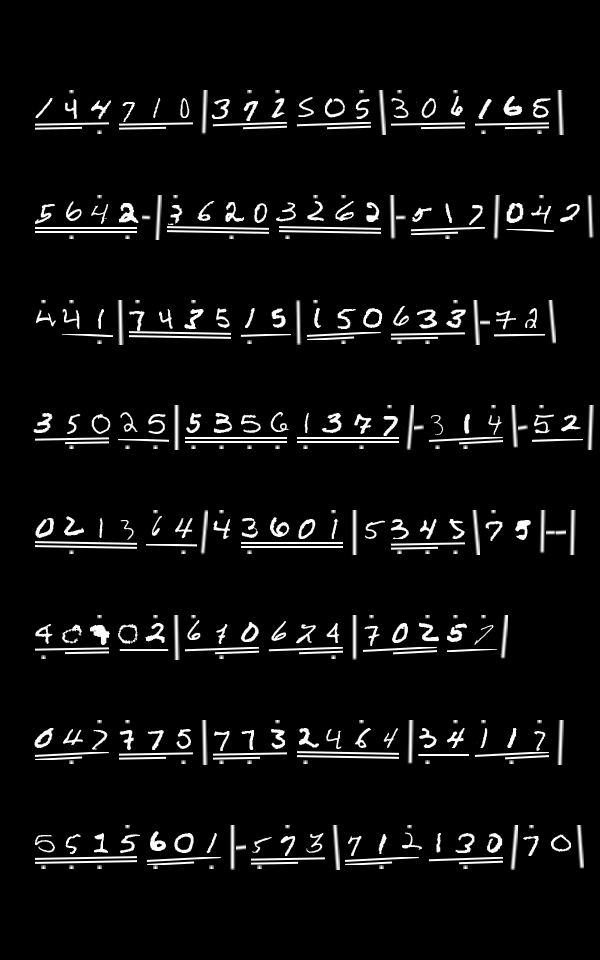 144710|372505|306165
5642-|36203262|-517|042
441|743515|150633|-72
35025|53561377|-314|-52
021364|43601|5345|75|--
40902|670674|70257
042775|7732464|34117
5515601|-573|712130|70